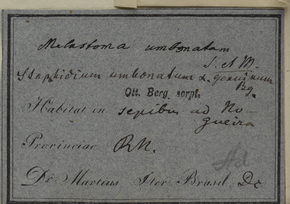 Melastoma umbonatum
S. N M.
Staphidium umbonatum α. genuinum
Bg.
Ott. Berg scrpt.
Habitat in sepibus ad No
gueira
Provinciae R.N.
Dr. Martius Iter Brasil. Dc